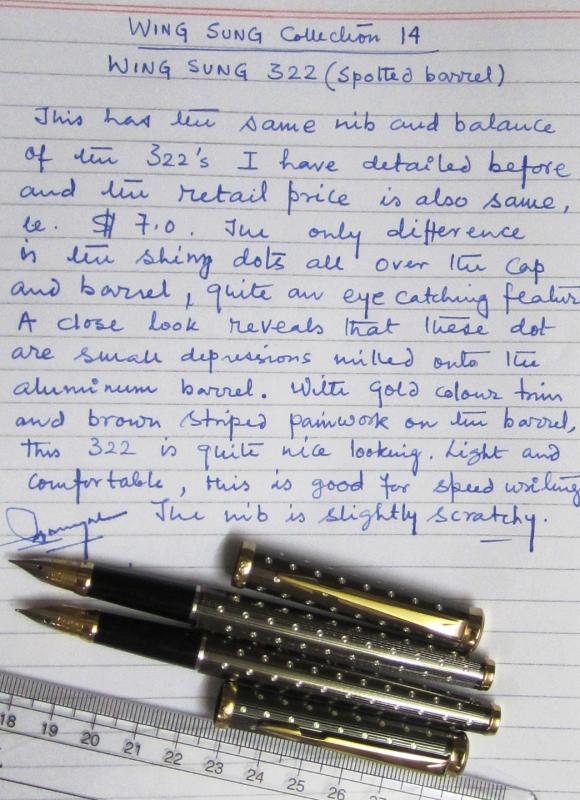 WING SUNG Collection 14
WING SUNG 322 (Spotted barrel)
This has the same nib and balance
of the 322's I have detailed before
and the retail price is also same,
ie. $ 7.0. The only difference
is the shiny dots all over the cap
and barrel, quite an eye catching featur
A close look reveals that these dot
are small depressions milled onto the
aluminum barrel. With gold colour trim
and brown striped painwork on the barrel,
this 322 is quite nice looking. Light and
comfortable, this is good for speed writing
The nib is slightly scratchy.
18 19 20 21 22 23 24 25 26 27